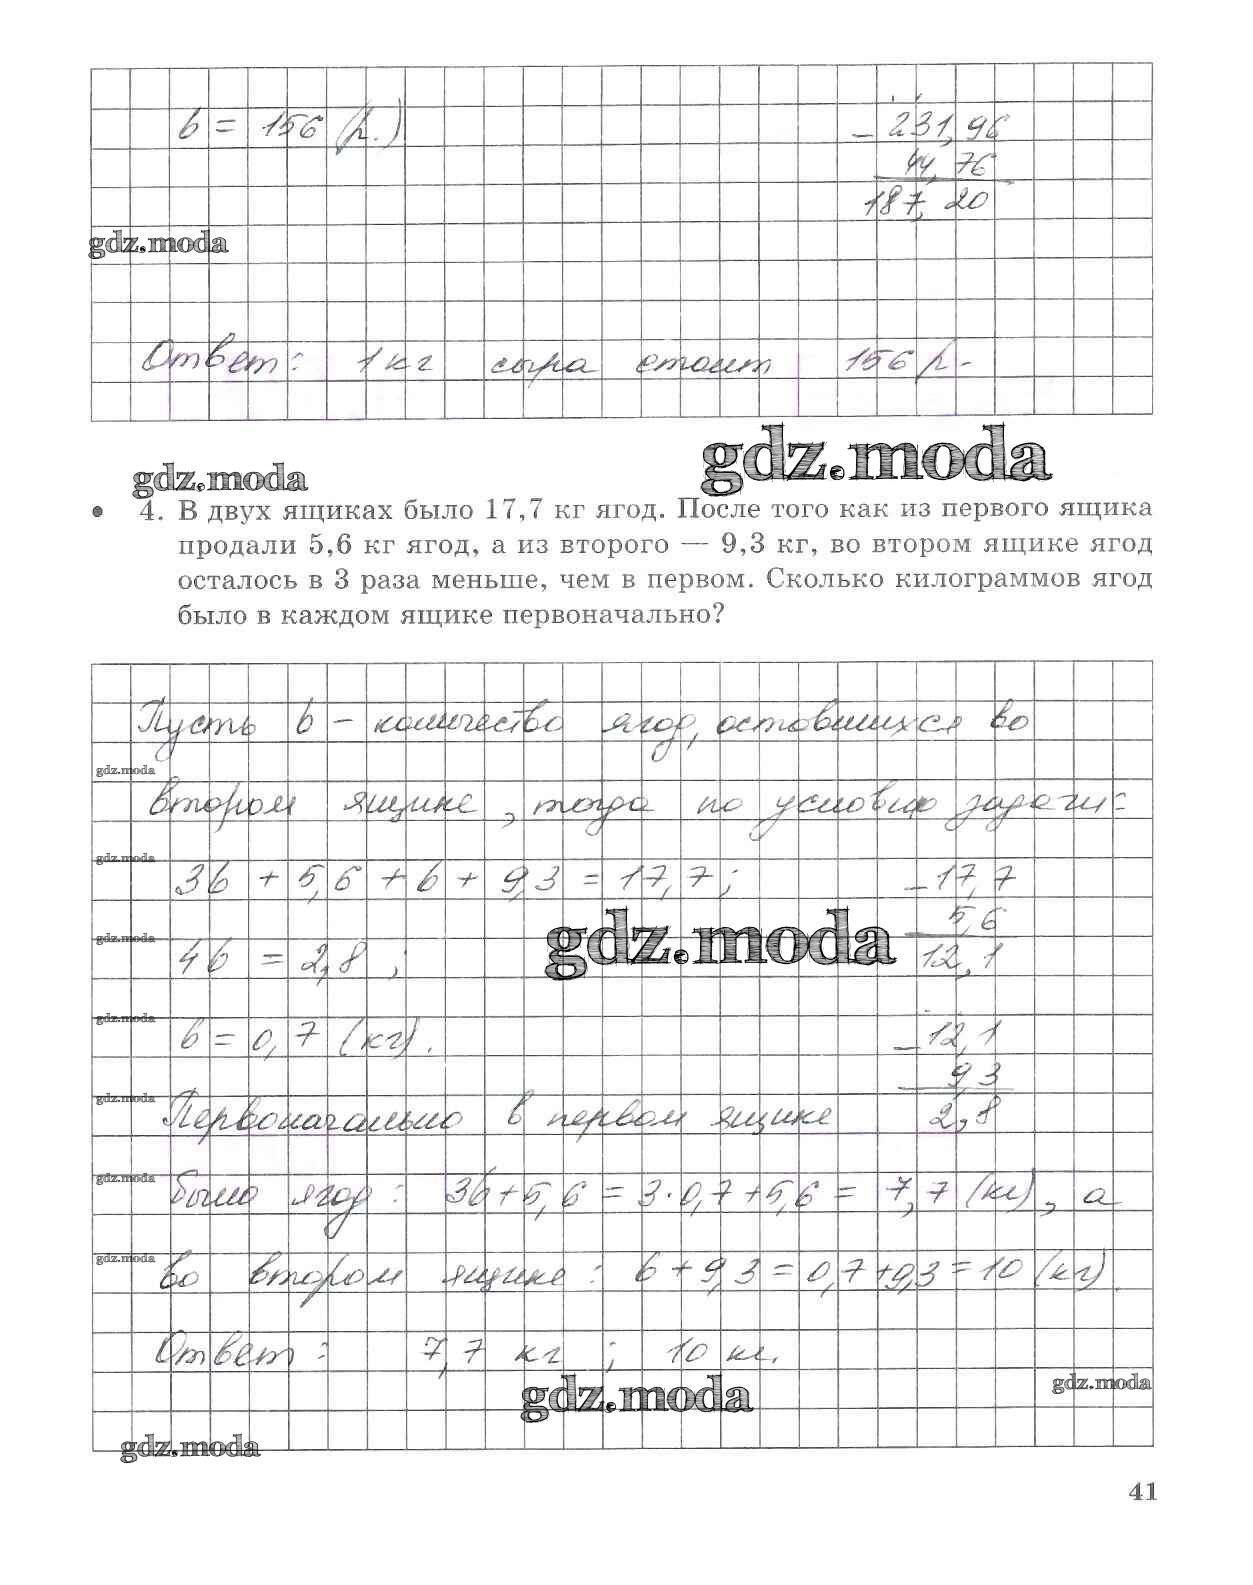 b = 156 (р.)
231,96
44,76
187,20
gdz.moda
Ответ: 1 кг сыра стоит 156 р.
gdz.moda
gdz.moda
• 4. В двух ящиках было 17,7 кг ягод. После того как из первого ящика
продали 5,6 кг ягод, а из второго — 9,3 кг, во втором ящике ягод
осталось в 3 раза меньше, чем в первом. Сколько килограммов ягод
было в каждом ящике первоначально?
Пусть b - количество ягод, оставшихся во
gdz.moda
втором ящике, тогда по условию задачи:
gdz.moda
3b + 5,6 + b + 9,3 = 17,7;
- 17,7
5,6
12,1
gdz.moda
gdz.moda
4b = 2,8;
gdz.moda
b = 0,7 (кг).
- 12,1
9,3
2,8
gdz.moda
Первоначально в первом ящике
gdz.moda
было ягод: 3b+5,6 = 3·0,7+5,6 = 7,7 (кг), а
gdz.moda
во втором ящике: b+9,3=0,7+9,3=10 (кг).
Ответ: 7,7 кг; 10 кг.
gdz.moda
gdz.moda
gdz.moda
41